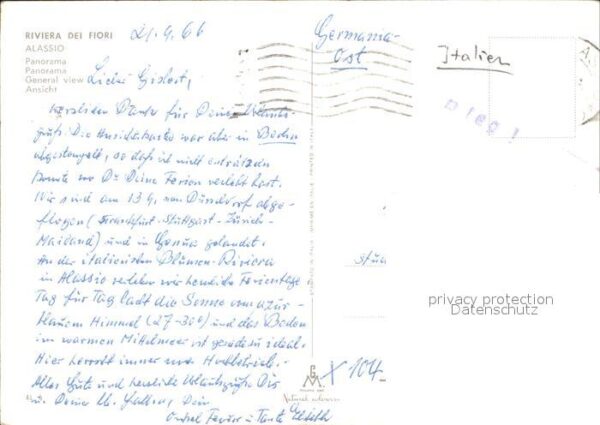 RIVIERA DEI FIORI
ALASSIO
Panorama
Panorama
General view
Ansicht
21.9.66
Germania-
Ost
Italien
Liebe Gisbert,
herzlichen Dank für Deine Urlaubs-
grüße. Die Ansichtskarte war aber in Baden
abgestempelt, so daß ich nicht enträtseln
konnte wo Du Deine Ferien verlebt hast.
Wir sind am 13.9. von Düsseldorf abge-
flogen (Frankfurt-Stuttgart-Zürich-
Mailand) und in Genua gelandet.
An der italienischen Blumen-Riviera
in Alassio verleben wir herrliche Ferientage
Tag für Tag lacht die Sonne vom azur-
blauem Himmel (27-30°) und das Baden
im warmen Mittelmeer ist geradezu ideal.
Hier herrscht immer noch Hochbetrieb.
Alles Gute und herzliche Urlaubsgrüße Dir
u. Deine
Onkel u. Tante
stua
privacy protection
Datenschutz
GM
X 104